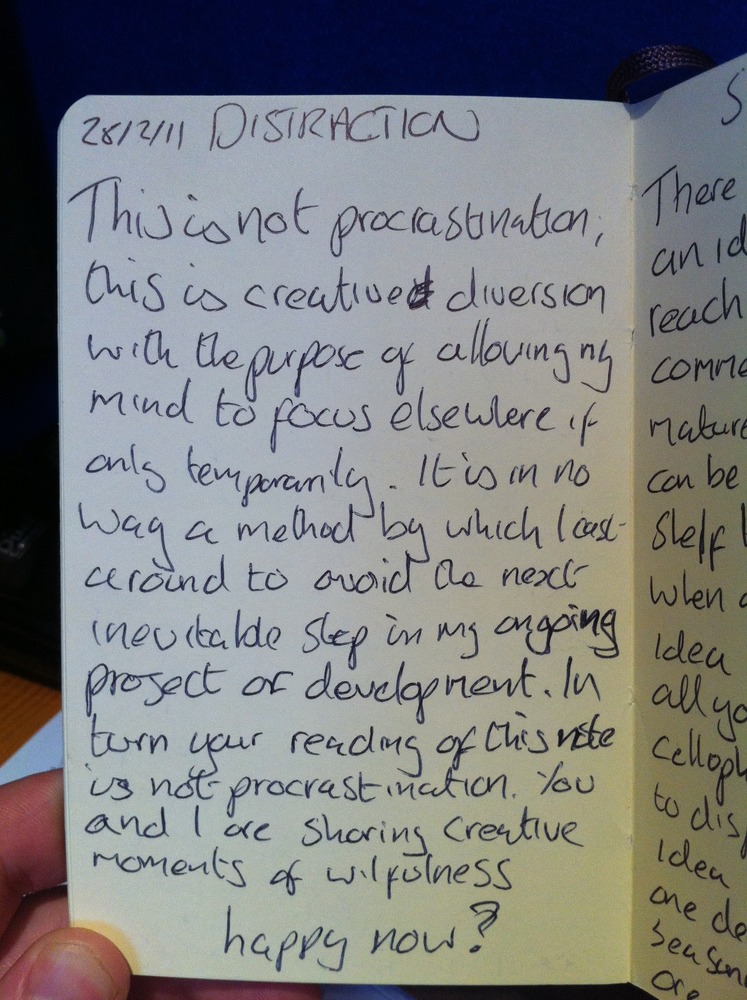 28/2/11 DISTRACTION
This is not procrastination,
this is creative diversion
with the purpose of allowing my
mind to focus elsewhere if
only temporarily. It is in no
way a method by which I cast
around to avoid the next
inevitable step in my ongoing
project of development. In
turn your reading of this note
is not procrastination. You
and I are sharing creative
moments of wilfulness
happy now?
S
There
an id
reach
comme
mature
can be
Shelf
when
Idea
all yo
celloph
to dis
Idea
one de
Season
are